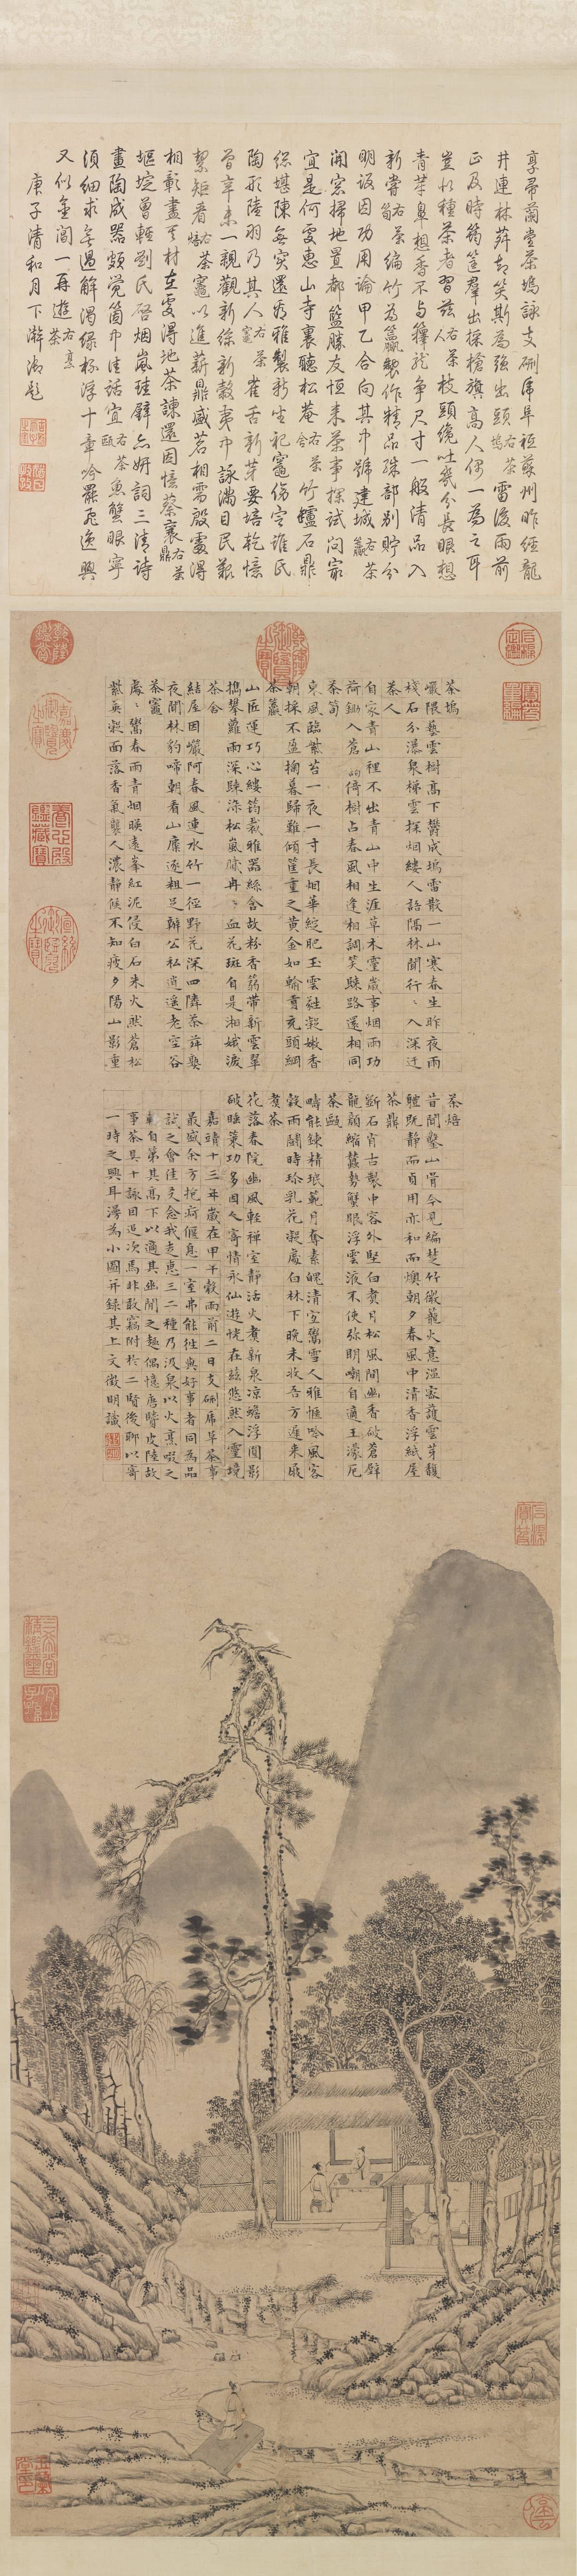 享帚蘭堂茶塢詠支硎僞阜祗蘇州昨經龍
井連林薛却笑斯為強出頭右茶塢雷後雨前
正及時筠筐群出採槍旗高人偶一為之耳
豈如種茶者習茲右茶人枝頭纔吐幾分長眼想
青芽鼻想香不與籜龍爭尺寸一般清品入
新嘗右茶筍編竹為籯製作精品殊部別貯分
明設因功用論甲乙合向其中號建城右茶籯
開窓掃地置都籃勝友恒來茶事探試問最
宜是何處惠山寺裏聽松菴右茶舍竹罏石鼎
總堪陳無突還看雅製新生祀竈傍定誰氏
陶形陸羽乃其人右茶竈雀舌新芽要焙乾憶
曾辛未一親觀新絲新穀夷中詠滿目民艱
絜矩看右茶焙茶竈以進薪鼎盛茗相需殷處得
相彰盡美村在處得地茶諫還因憶蔡襄右茶鼎
堀埞曾輕劉氏啓烟嵐珪璧六妍詞三清詩
畫陶成器頗覺箇中佳話宜右茶甌魚蟹眼寧
須細求無過解渴綠杯浮十章吟罷飛逸興
又似重閣一再遊右煮茶
庚子清和月下澣御題
茶塢
巖隈藝雲樹高下鬱成塢雷散一山寒春生昨夜雨
棧石分瀑泉梯雲探烟縷人語隔林聞行行入深迂
茶人
自家青山裡不出青山中生涯草木靈歲事烟雨功
荷鋤入蒼靄倚樹占春風相逢相調笑歸路還相同
茶筍
東風臨紫苔一夜一寸長烟華綻肥玉雲蕤凝嫩香
朝採不盈掬暮歸難傾筐重之黃金如輸貢充頭綱
茶籯
山匠運巧心縷筠裁雅器絲含故粉香篛帶新雲翠
攜攀蘿雨深歸染松嵐膩冉冉血花斑自是湘娥淚
茶舍
結屋因巖阿春風連水竹一徑野花深四鄰茶荈熟
夜聞林豹啼朝看山麋逐粗足辦公私逍遙老空谷
茶竈
處處鬻春雨青烟映遠峯紅泥侵白石朱火然蒼松
紫英凝面落香氣襲人濃靜候不知疲夕陽山影重
茶焙
昔聞鑿山骨今見編楚竹微籠火意溫密護雲芽馥
體既靜而貞用亦和而燠朝夕春風中清香浮紙屋
茶鼎
斵石肖古製中容外堅白煮月松風間幽香破蒼壁
龍顏縮蠢勢蟹眼浮雲液不使弥明嘲自適王濛厄
茶甌
疇能鍊精珉範月奪素魄清宜鬻雪人雅愜吟風客
穀雨鬬時珍乳花凝處白林下晚未收吾方遲來屐
煮茶
花落春院幽風輕禪室靜活火煮新泉涼蟾浮圓影
破睡策功多因人寄情永仙遊恍在茲悠然入靈境
嘉靖十三年歲在甲午穀雨前二日支硎虎阜茶事
最盛余方抱疴偃息一室弗能往與好事者同為品
試之會佳友念我走惠三二種乃汲泉以火烹啜之
輒自第其高下以適其幽閒之趣偶憶唐賢皮陸故
事茶具十詠因追次焉非敢竊附於二賢後聊以寄
一時之興耳漫為小圖并錄其上文徵明識